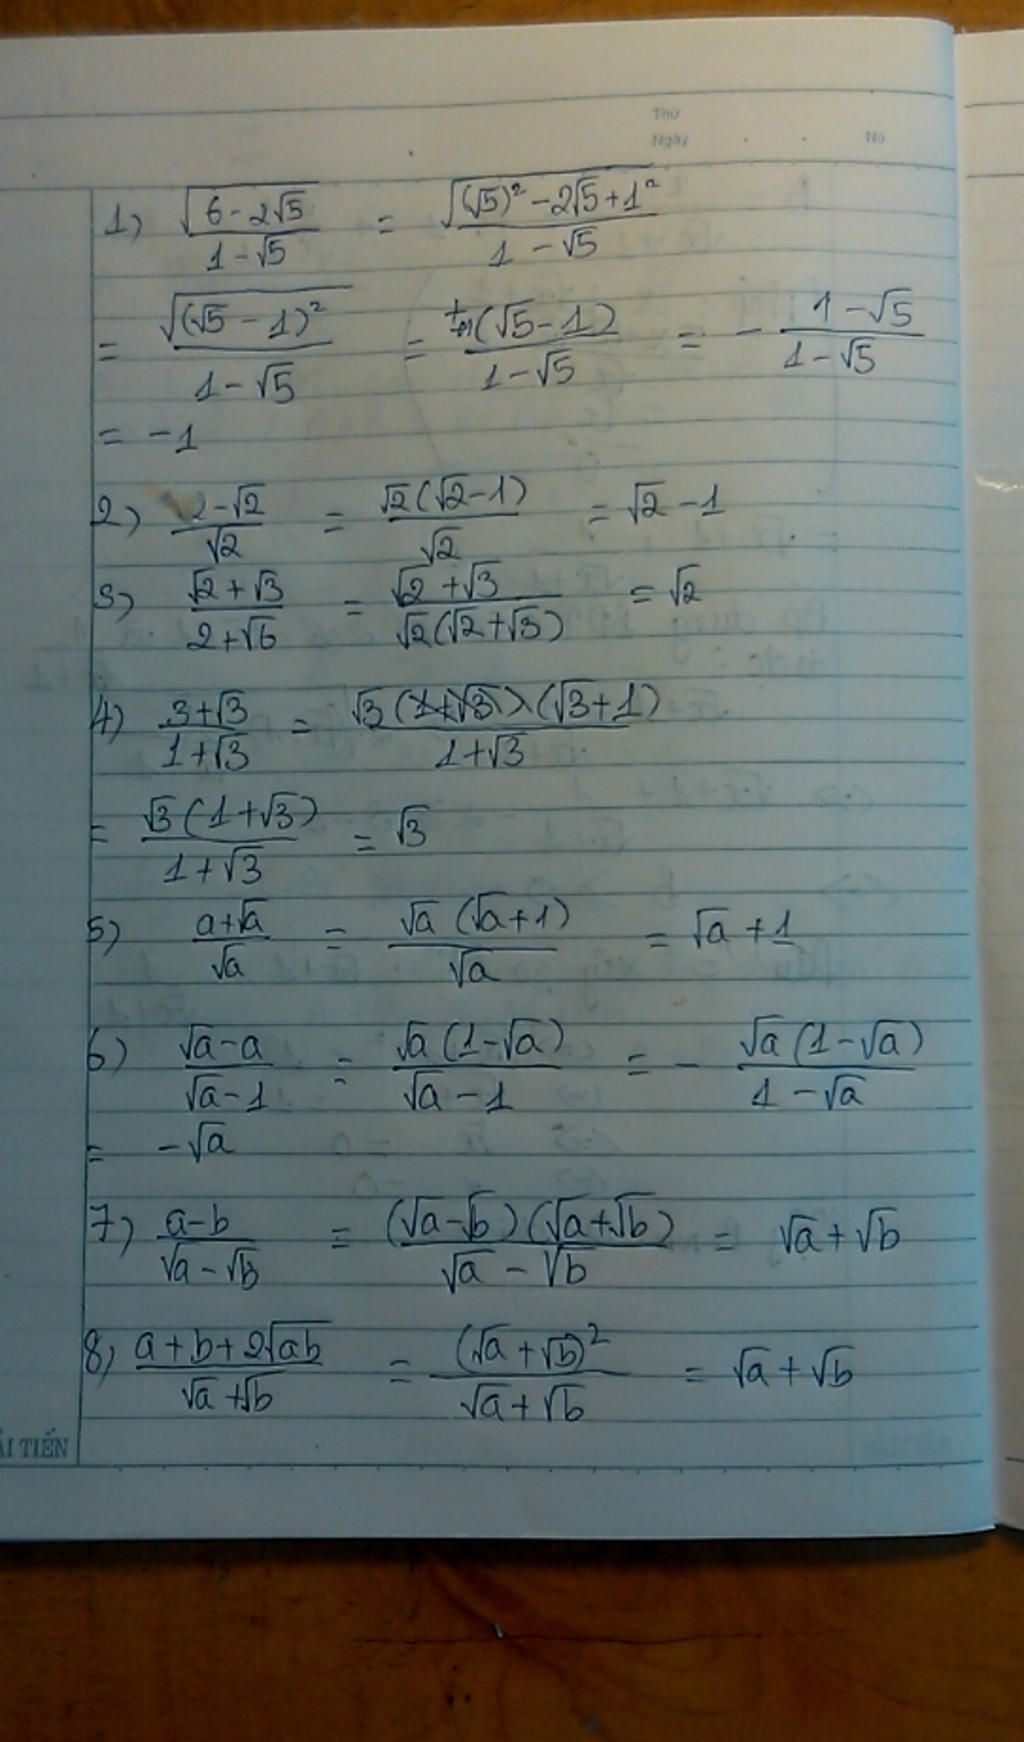 Thứ
Ngày . . No
1) √(6-2√5)/(1-√5) = √((√5)²-2√5+1²)/(1-√5)
= √((√5-1)²)/(1-√5) = (√5-1)/(1-√5) = - (1-√5)/(1-√5)
= -1
2) (2-√2)/√2 = √2(√2-1)/√2 = √2-1
3) (√2+√3)/(2+√6) = (√2+√3)/(√2(√2+√3)) = √2
4) (3+√3)/(1+√3) = √3(√3+1)/(1+√3)
= √3(1+√3)/(1+√3) = √3
5) (a+√a)/√a = √a(√a+1)/√a = √a+1
6) (√a-a)/(√a-1) = √a(1-√a)/(√a-1) = - √a(1-√a)/(1-√a)
= -√a
7) (a-b)/(√a-√b) = (√a-√b)(√a+√b)/(√a-√b) = √a+√b
8) (a+b+2√ab)/(√a+√b) = (√a+√b)²/(√a+√b) = √a+√b
ẢI TIẾN